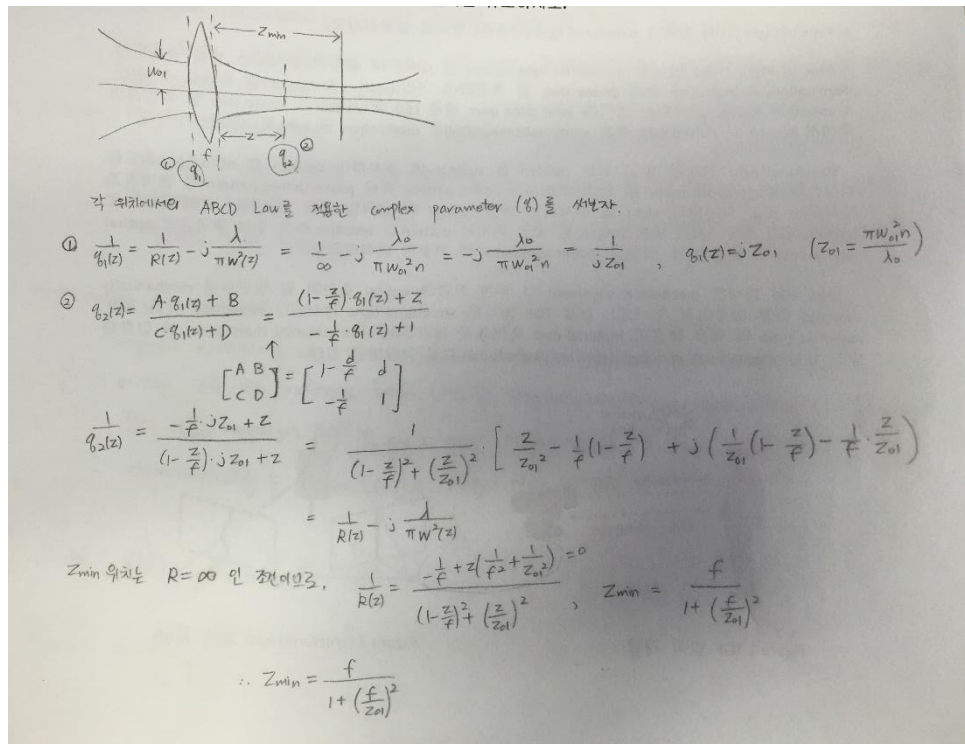 Zmin
W01
z
f
① q1
q2 ②
각 위치에서의 ABCD Law를 적용한 complex parameter (q)를 써보자.
① 1/q1(z) = 1/R(z) - j λ/πW²(z) = 1/∞ - j λ0/πW01²n = -j λ0/πW01²n = 1/jZ01 , q1(z)=jZ01 (Z01 = πW01²n/λ0)
② q2(z) = (A·q1(z) + B)/(C·q1(z)+D) = ((1-z/f)·q1(z) + z)/(-1/f·q1(z) + 1)
↑
[A B C D] = [1-d/f d -1/f 1]
1/q2(z) = (-1/f·jZ01 + z)/((1-z/f)·jZ01 + z) = 1/((1-z/f)² + (z/Z01)²) · [ z/Z01² - 1/f(1-z/f) + j (1/Z01(1-z/f) - 1/f·z/Z01)
= 1/R(z) - j λ/πW²(z)
Zmin 위치는 R=∞ 인 조건이므로, 1/R(z) = (-1/f + z(1/f² + 1/Z01²))/((1-z/f)² + (z/Z01)²) =0 , Zmin = f/(1+(f/Z01)²)
∴ Zmin = f/(1+(f/Z01)²)